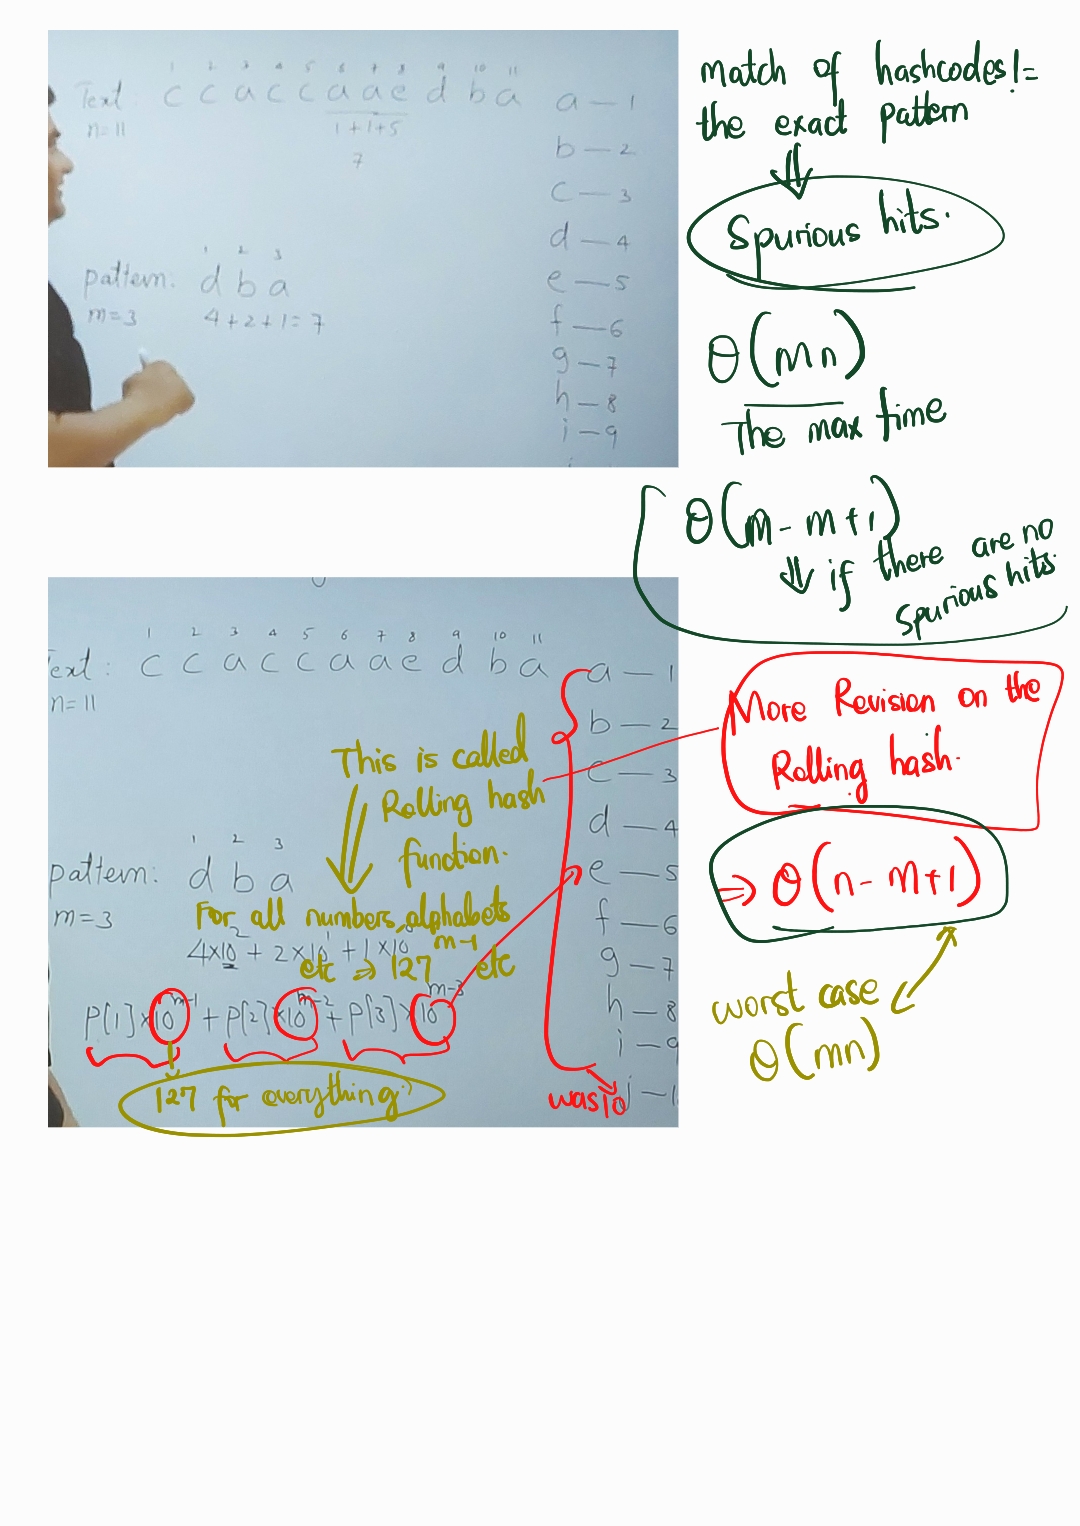 1 2 3 4 5 6 7 8 9 10 11
Text: c c a c c a a e d b a
n=11
1+1+5
7
a — 1
b — 2
c — 3
d — 4
e — 5
f — 6
g — 7
h — 8
i — 9
1 2 3
pattern: d b a
m=3 4+2+1=7
match of hashcodes !=
the exact pattern
Spurious hits.
θ(mn)
The max time
θ(m-m+1)
if there are no
Spurious hits.
1 2 3 4 5 6 7 8 9 10 11
ext: c c a c c a a e d b a
n=11
a — 1
b — 2
c — 3
d — 4
e — 5
f — 6
g — 7
h — 8
i — 9
j — 1
This is called
Rolling hash
function.
1 2 3
pattern: d b a
m=3
For all numbers, alphabets
4×10² + 2×10¹ + 1×10⁰ m-1
etc ⇒ 127 etc
P[1]×10^m-1 + P[2]×10^m-2 + P[3]×10^m-3
127 for everything.
was 10
More Revision on the
Rolling hash.
⇒ θ(n-m+1)
worst case
θ(mn)